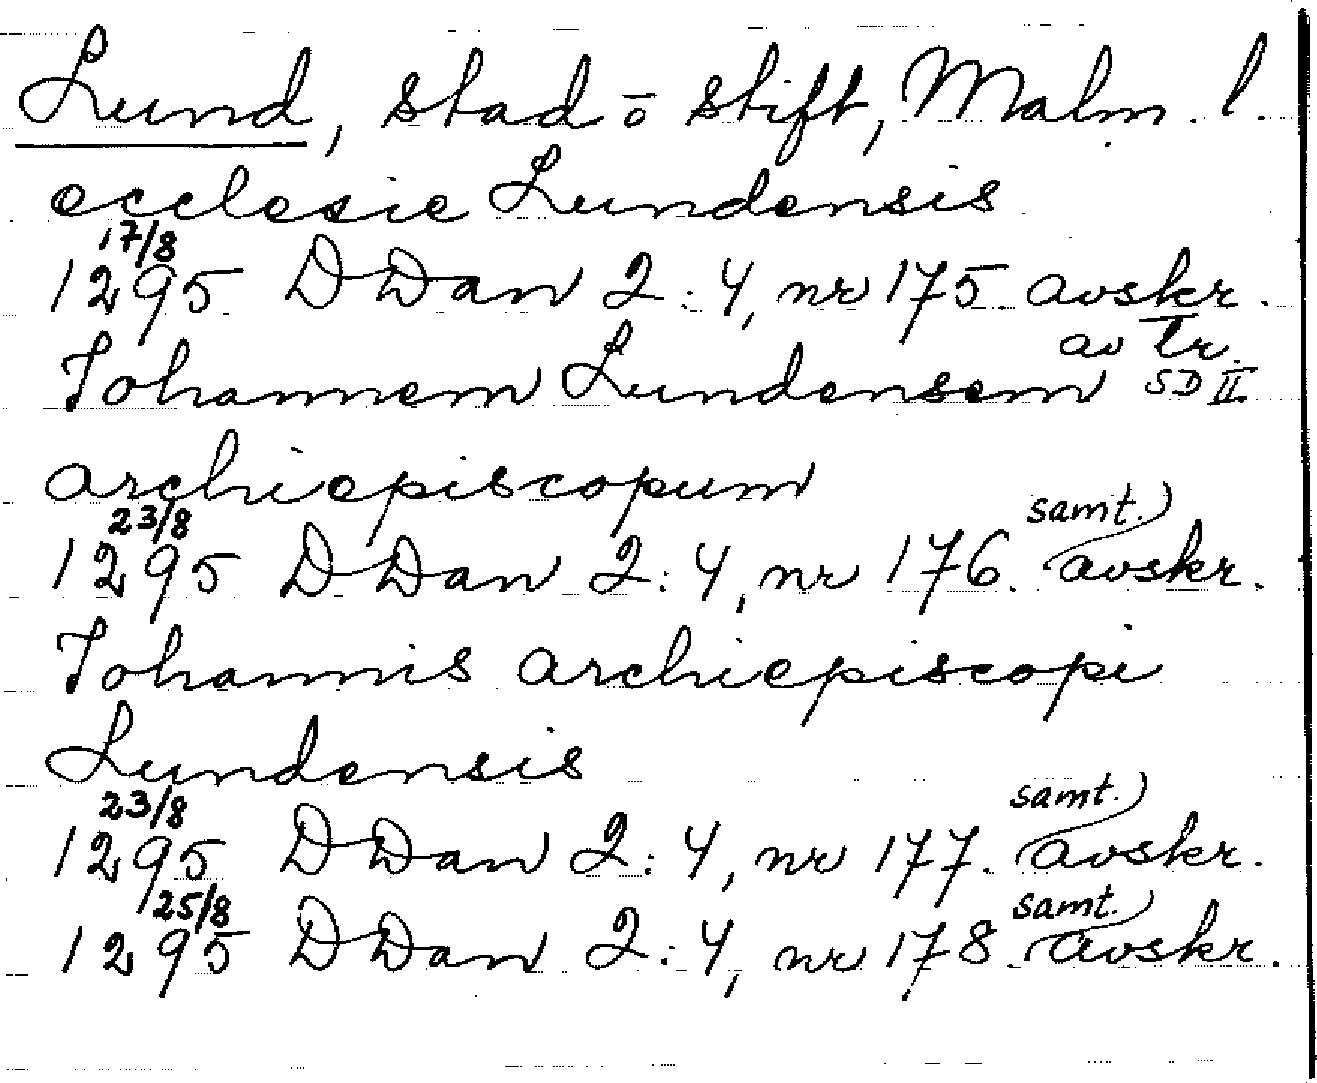 Lund, stad o stift, Malm. l.
ecclesie Lundensis
17/8
1295 DDan 2:4, nr 175 avskr.
av tr.
Johannem Lundensem SD II
archiepiscopum
23/8 samt.)
1295 DDan 2:4, nr 176. avskr.
Johannis archiepiscopi
Lundensis
23/8 samt.)
1295 DDan 2:4, nr 177. avskr.
25/8 samt.)
1295 DDan 2:4, nr 178. avskr.